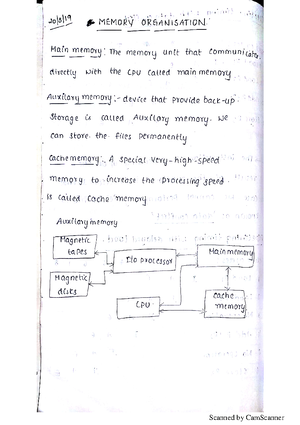 20/8/19
MEMORY ORGANISATION
Main memory: The memory unit that communicates
directly with the CPU called main memory
Auxilary memory: - device that provide back-up
storage is called Auxilary memory. We
can store the files permanently
Cache memory: A special very-high-speed
memory to increase the processing speed.
is called Cache memory
Auxilary memory
Magnetic
tapes
I/o processor
Main memory
Magnetic
disks
CPU
cache
memory
Scanned by CamScanner